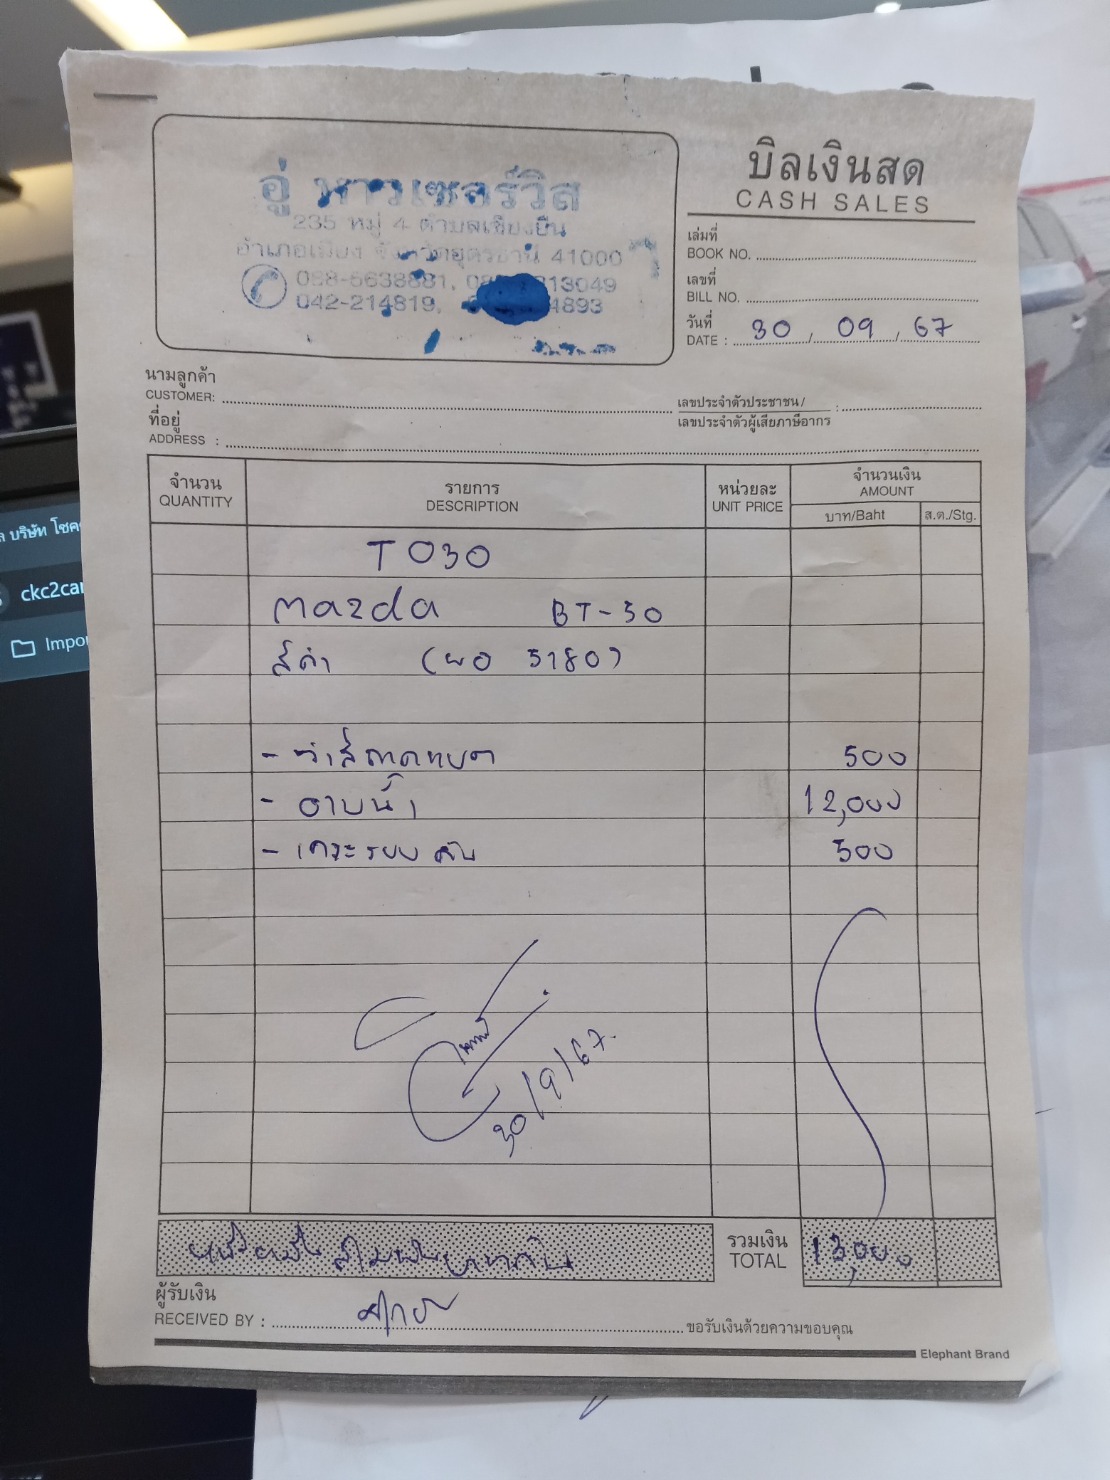 บิลเงินสด
CASH SALES
อู่ หาวเซอร์วิส
235 หมู่ 4 ตำบลเชียงยืน
อำเภอเมือง จังหวัดอุดรธานี 41000
088-5638881, 313049
042-214819, 4893
เล่มที่
BOOK NO.
เลขที่
BILL NO.
วันที่
DATE : 30 / 09 / 67
นามลูกค้า
CUSTOMER:
เลขประจำตัวประชาชน/
เลขประจำตัวผู้เสียภาษีอากร :
ที่อยู่
ADDRESS :
จำนวน รายการ หน่วยละ จำนวนเงิน
QUANTITY DESCRIPTION UNIT PRICE AMOUNT
บาท/Baht ส.ต./Stg.
TO30
mazda BT-50
สีดำ (ผอ 5180)
- ทำสี 500
- อาบน้ำ 12,000
- 500
30/9/67.
รวมเงิน
TOTAL 13,000
ผู้รับเงิน
RECEIVED BY :
ขอรับเงินด้วยความขอบคุณ
Elephant Brand
บริษัท โชค
ckc2car
Impo